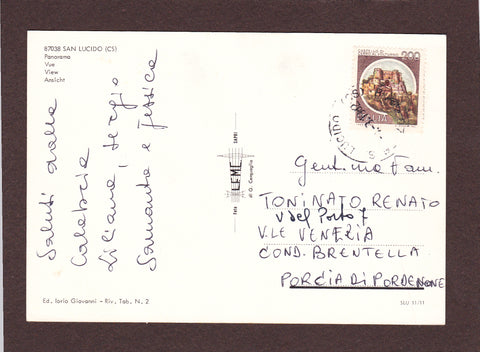 87038 SAN LUCIDO (CS)
Panorama
Vue
View
Ansicht
Saluti dalla
Calabria
Liliana, Sergio
Samanta e Jessica
Ed. Iorio Giovanni - Riv. Tab. N. 2
Foto LEME SAPRI
di G.
200
ITALIA
S. LUCIDO
Gent.ma Fam.
TONINATO RENATO
V del Porto 7
V.LE VENEZIA
COND. BRENTELLA
PORCIA DI PORDENONE
SLU 11/11